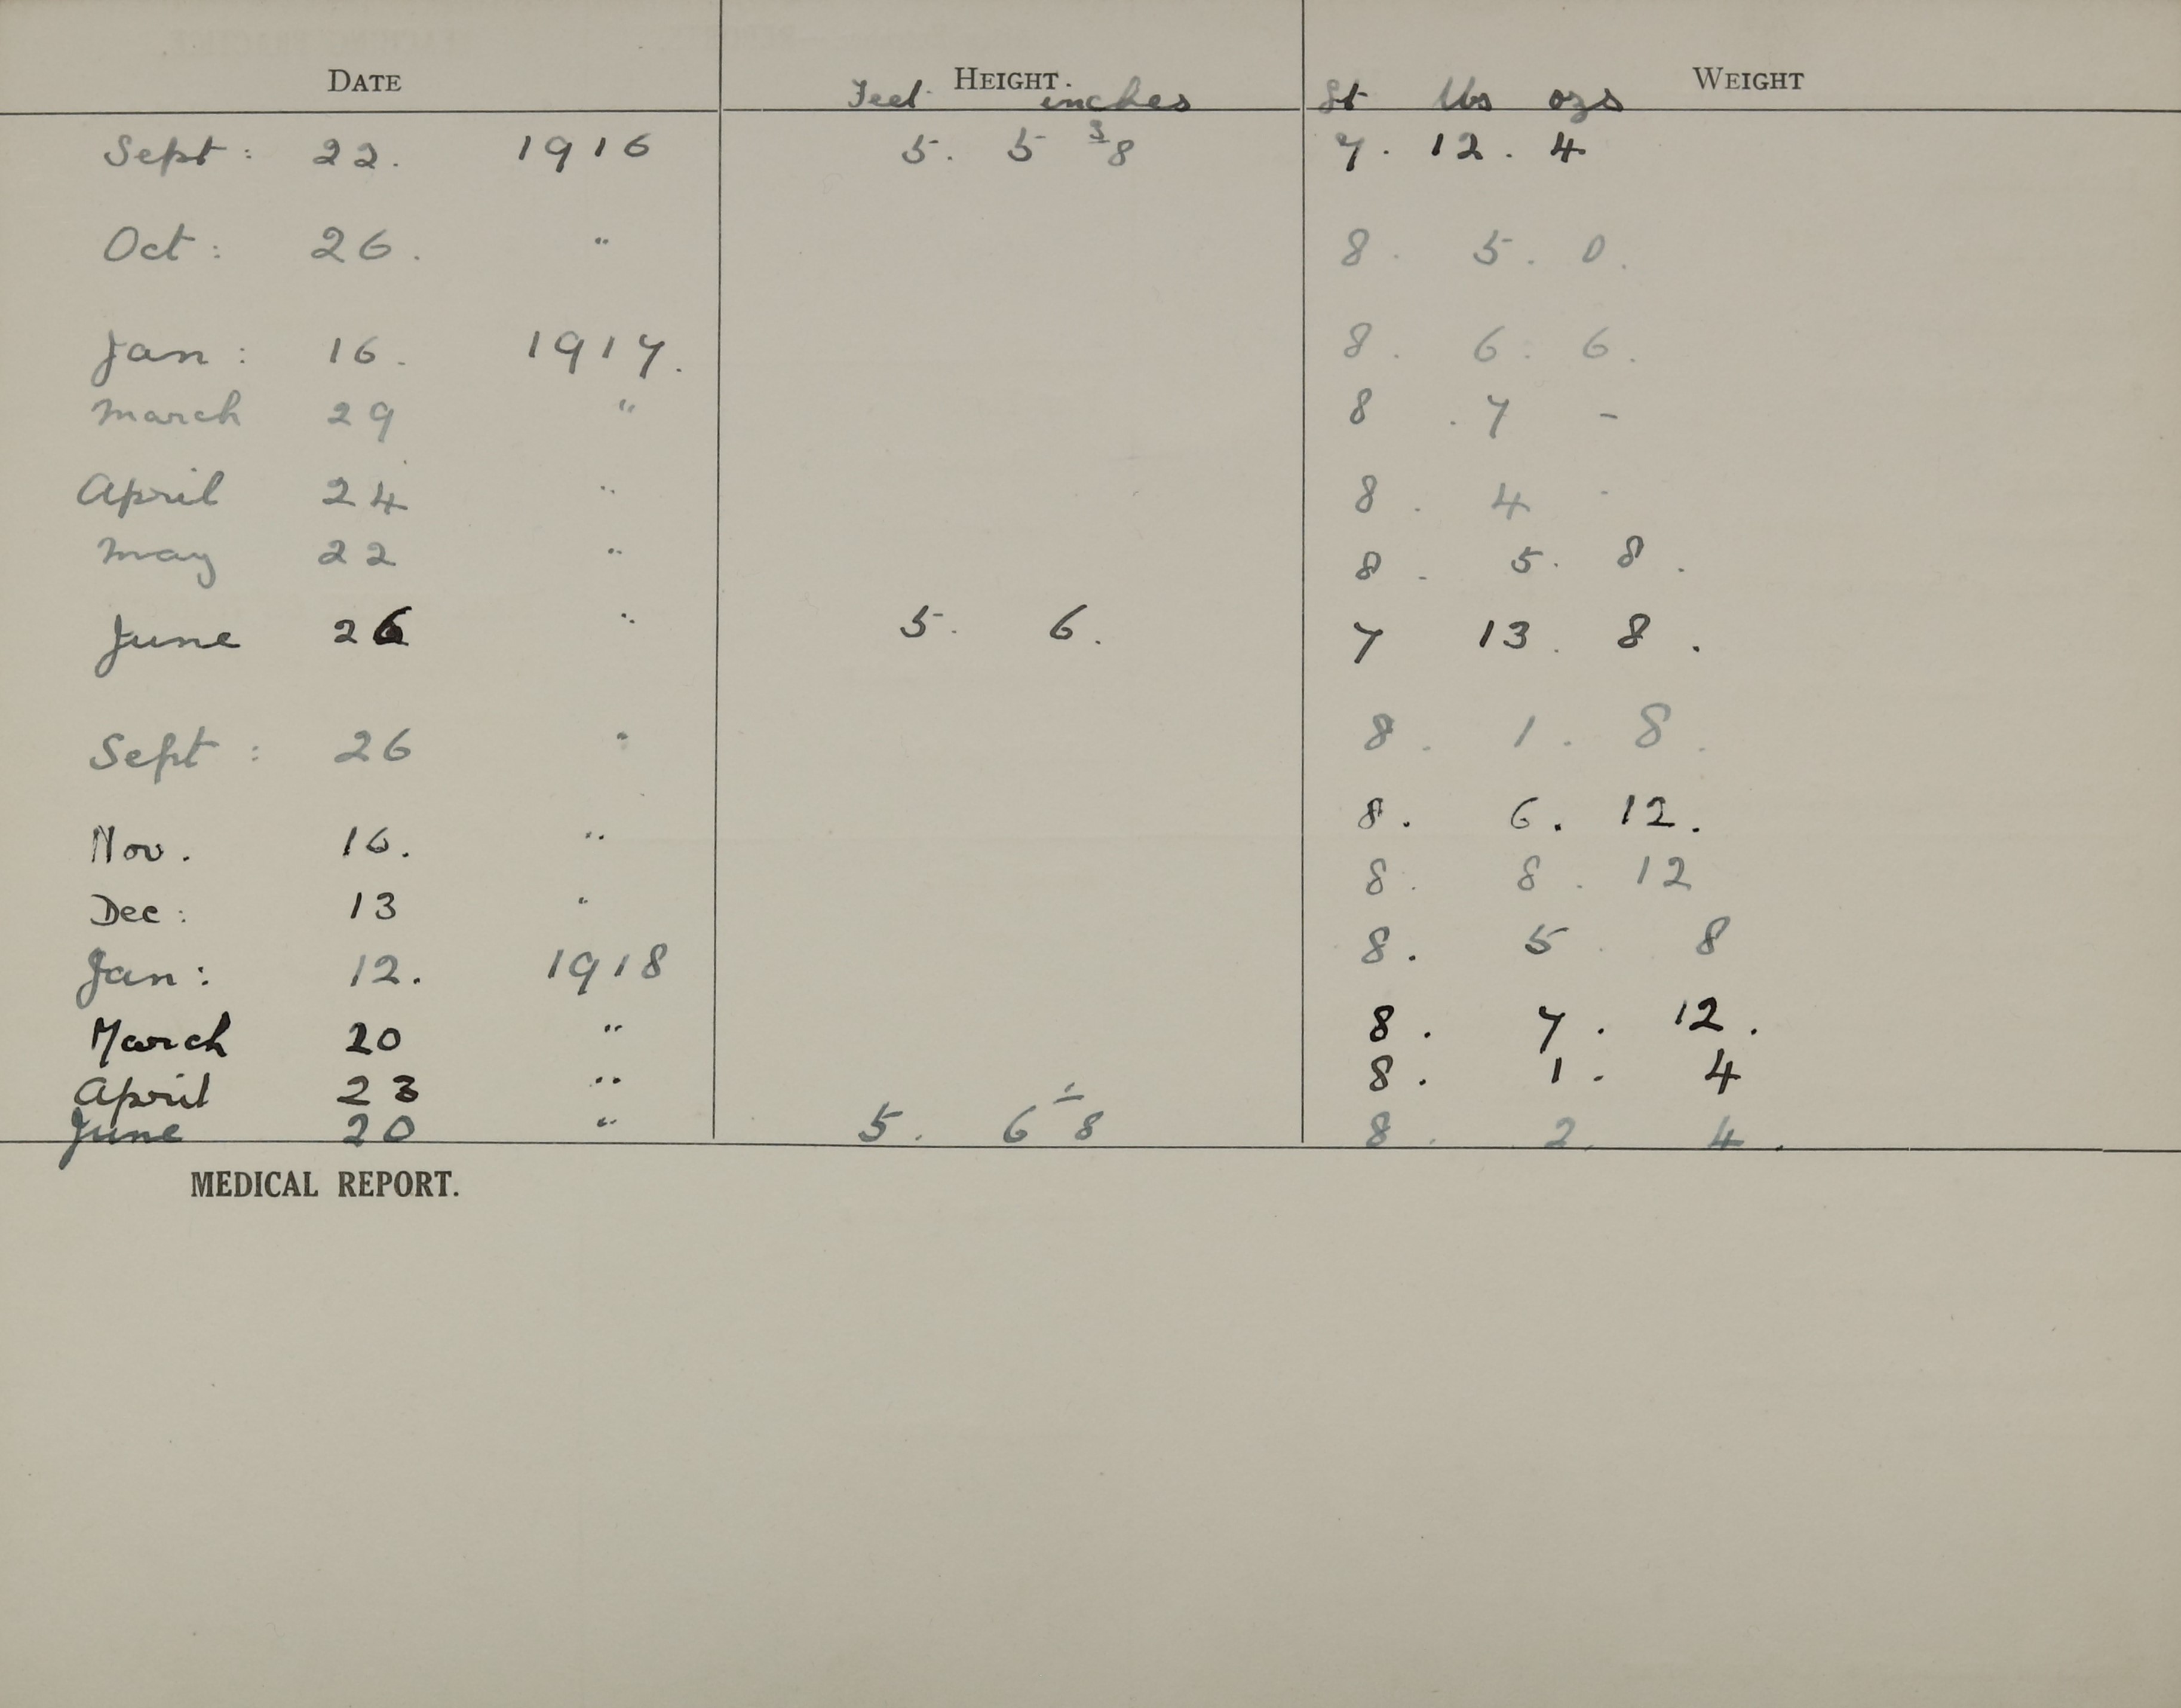 DATE HEIGHT. WEIGHT
Feet inches St lbs ozs
Sept: 22. 1916 5. 5 3/8 7. 12. 4
Oct: 26. " 8. 5. 0.
Jan: 16. 1917. 8. 6. 6.
March 29 " 8 . 7 -
April 24 " 8 . 4 -
May 22 " 8 . 5. 8.
June 26 " 5. 6. 7 13. 8.
Sept: 26 " 8. 1. 8.
Nov. 16. " 8. 6. 12.
Dec: 13 " 8. 8. 12
Jan: 12. 1918 8. 5. 8
March 20 " 8. 7. 12.
April 23 " 8. 1. 4
June 20 " 5. 6 1/8 8. 2. 4.
MEDICAL REPORT.